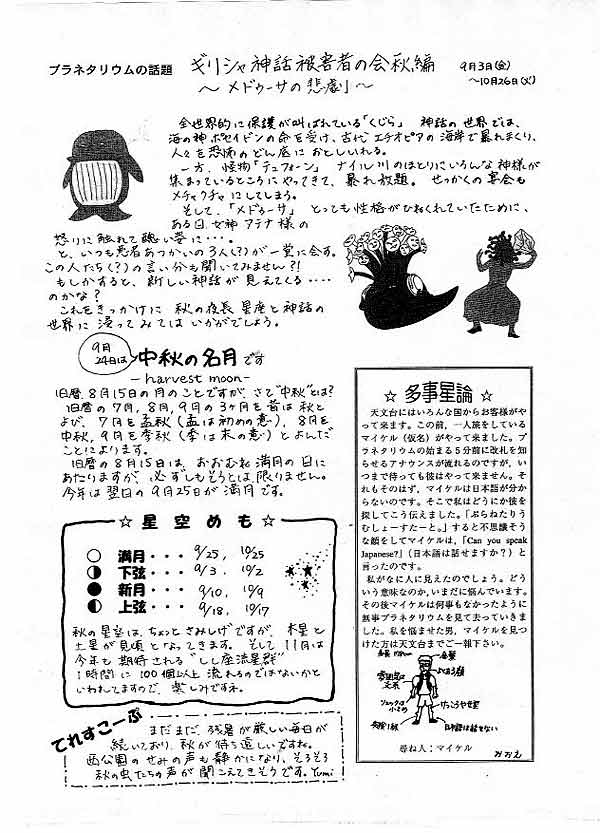 プラネタリウムの話題
ギリシャ神話被害者の会秋編
～メドゥーサの悲劇～
9月3日(金)
～10月26日(火)
全世界的に保護が叫ばれている「くじら」 神話の世界では、
海の神ポセイドンの命を受け、古代エチオピアの海岸で暴れまくり、
人々を恐怖のどん底におとしいれる。
一方、怪物「テュフォーン」 ナイル川のほとりにいろんな神様が
集まっているところにやってきて、暴れ放題。せっかくの宴会も
メチャクチャにしてしまう。
そして、「メドゥーサ」 とっても性格がひねくれていたために、
ある日、女神アテナ様の
怒りに触れて醜い姿に・・・。
と、いつも悪者あつかいの3人(?)が一堂に会す。
この人たち(?)の言い分も聞いてみません?!
もしかすると、新しい神話が見えてくる・・・・
のかな?
これをきっかけに 秋の夜長 星座と神話の
世界に浸ってみてはいかがでしょう。
9月
24日は
中秋の名月です
-harvest moon-
旧暦、8月15日の月のことですが、さて"中秋"とは?
旧暦の7月,8月,9月の3ヶ月を昔は秋と
よび、7月を孟秋(孟は初めの意)、8月を
中秋、9月を季秋(季は末の意)とよんだ
ことによります。
旧暦の8月15日は、おおむね満月の日に
あたりますが、必ずしもそうとは限りません。
今年は翌日の9月25日が満月です。
☆星空めも☆
○ 満月・・・ 9/25, 10/25
◑ 下弦・・・ 9/3, 10/2
● 新月・・・ 9/10, 10/9
◐ 上弦・・・ 9/18, 10/17
秋の星空は、ちょっとさみしげですが、木星と
土星が見頃となってきます。そして11月は
今年も期待される"しし座流星群"
1時間に100個以上流れるのではないかと
いわれてますので、楽しみですネ。
てれすこーぷ
まだまだ残暑が厳しい毎日が
続いており、秋が待ち遠しいですね。
西公園のせみの声も静かになり、そろそろ
秋の虫たちの声が聞こえてきそうです。Yumi
☆ 多事星論 ☆
天文台にはいろんな国からお客様がや
って来ます。この前、一人旅をしている
マイケル(仮名)がやって来ました。プ
ラネタリウムの始まる5分前に改札を知
らせるアナウンスが流れるのですが、い
つまで待っても彼はやって来ません。そ
れもそのはず、マイケルは日本語が分か
らないのです。そこで私はどうにか彼を
探してこう伝えました。「ぷらねたりう
むしょーすたーと。」すると不思議そう
な顔をしてマイケルは、「Can you speak
Japanese?」(日本語は話せますか?)と
言ったのです。
私がなに人に見えたのでしょう。どう
いう意味なのか、いまだに悩んでいます。
その後マイケルは何事もなかったように
無事プラネタリウムを見て去っていきま
した。私を悩ませた男、マイケルを見つ
けた方は天文台までご一報下さい。
金髪
けっこうやせ型
日本語は話せない
尋ね人:マイケル